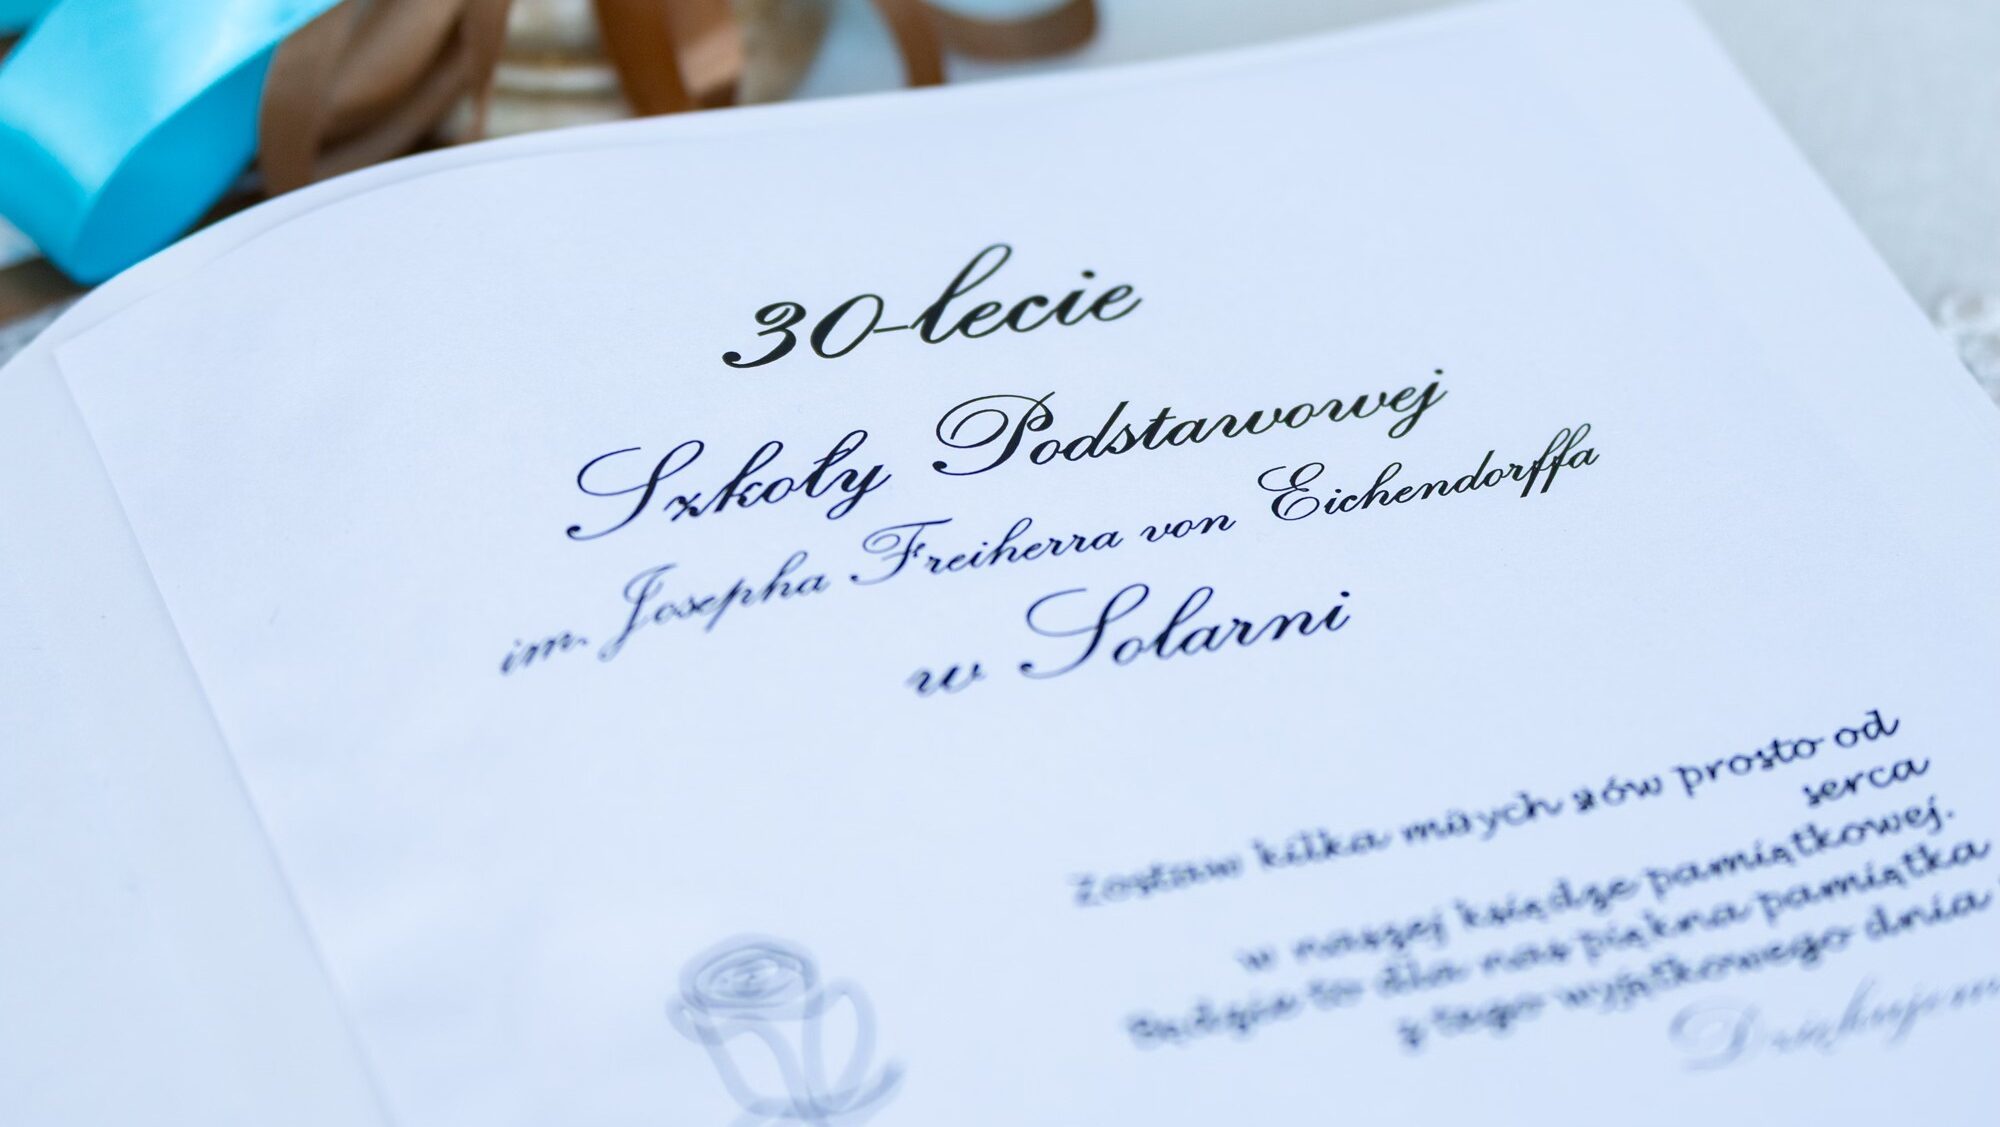 30-lecie
Szkoły Podstawowej
im. Josepha Freiherra von Eichendorffa
w Solarni
Zostaw kilka miłych słów prosto od
serca
w naszej księdze pamiątkowej.
Będzie to dla nas piękna pamiątka
z tego wyjątkowego dnia
Dziękujemy